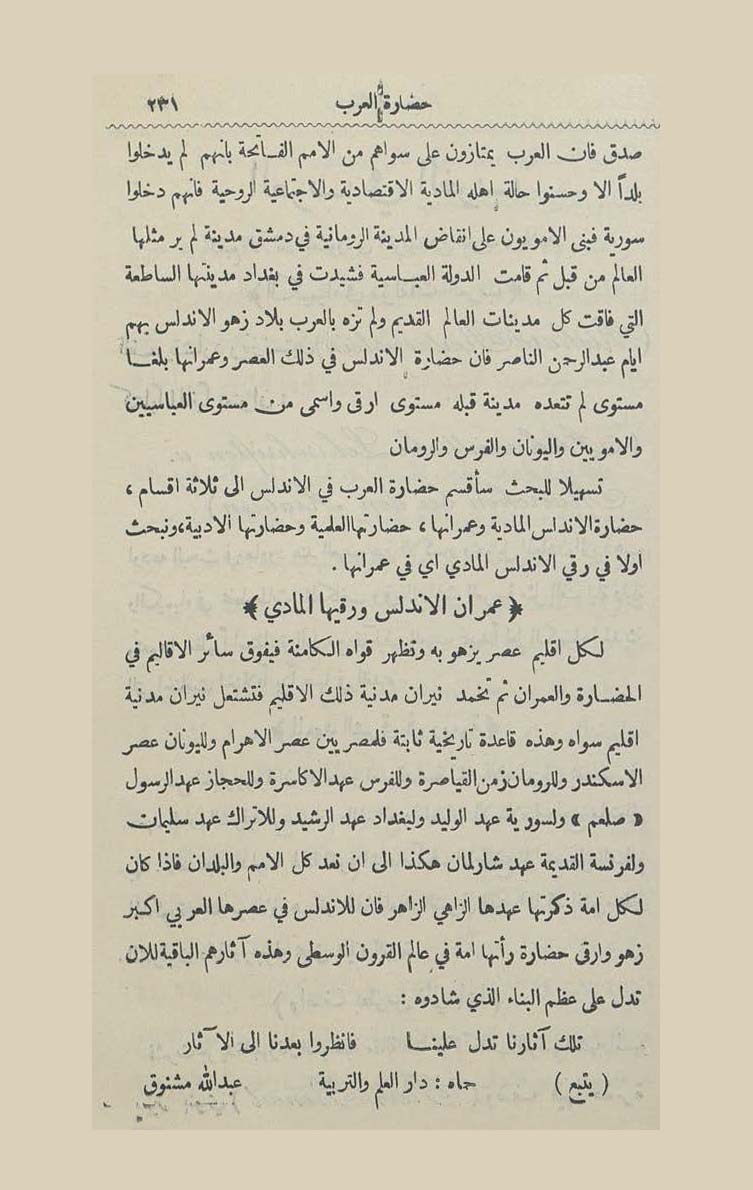 حضارة العرب ٢٣١
صدق فان العرب يمتازون على سواهم من الامم الفـاتحة بانهم لم يدخلوا
بلداً الا وحسنوا حالة اهله المادية الاقتصادية والاجتماعية الروحية فانهم دخلوا
سورية فبنى الامويون على انقاض المدينة الرومانية في دمشق مدينة لم ير مثلها
العالم من قبل ثم قامت الدولة العبـاسية فشيدت في بغداد مدينتها الساطعة
التي فاقت كل مدينات العالم القديم ولم تزه بالعرب بلاد زهو الاندلس بهم
ايام عبدالرحمن الناصر فان حضارة الاندلس في ذلك العصر وعمرانها بلغـا
مستوى لم تتعده مدينة قبله مستوى ارقى واسمى من مستوى العباسيين
والامويين واليونان والفرس والرومان
تسهيلا للبحث سأقسم حضارة العرب في الاندلس الى ثلاثة اقسام ،
حضارة الاندلس المادية وعمرانها ، حضارتها العلمية وحضارتها الادبية، ونبحث
اولا في رقي الاندلس المادي اي في عمرانها .
﴿ عمران الاندلس ورقيها المادي ﴾
لـكل اقليم عصر يزهو به وتظهر قواه الـكامنة فيفوق سائر الاقاليم في
الحضـارة والعمران ثم تخمد نيران مدنية ذلك الاقليم فتشتعل نيران مدنية
اقليم سواه وهذه قاعدة تاريخية ثابتة فلمصريين عصر الاهرام ولليونان عصر
الاسكندر وللرومان زمن القياصرة وللفرس عهد الاكاسرة وللحجاز عهد الرسول
« صلعم » ولسورية عهد الوليد ولبغداد عهد الرشيد وللاتراك عهد سليمان
ولفرنسة القديمة عهد شارلمان هكذا الى ان نعد كل الامم والبلدان فاذا كان
لـكل امة ذكرتها عهدها الزاهي الزاهر فان للاندلس في عصرها العربي اكبر
زهو وارقى حضارة رأتها امة في عالم القرون الوسطى وهذه آثارهم الباقية للان
تدل على عظم البناء الذي شادوه :
تلك آثارنا تدل علينـا فانظروا بعدنا الى الآثار
( يتبع ) حماه : دار العلم والتربية عبدالله مشنوق